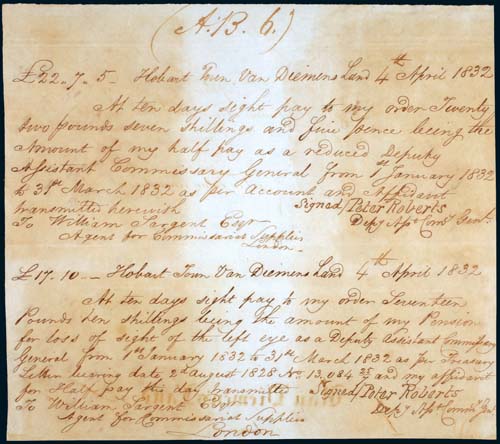 (A. B. 6.)
£22.7.5 - Hobart Town Van Diemens Land 4th April 1832
At ten days sight pay to my order Twenty
two pounds seven shillings and five pence being the
Amount of my half pay as a reduced Deputy
Assistant Commissary General from 1st January 1832
to 31st March 1832 as per Account and Affidavit
transmitted herewith Signed/Peter Roberts
To William Sargent Esqr Depy Asst Comy Genl.
Agent for Commissariat Supplies
London.
£17.10 - - Hobart Town Van Diemens Land 4th April 1832
At ten days sight pay to my order Seventeen
Pounds ten shillings being the amount of my Pension
for loss of sight of the left eye as a Deputy Assistant Commissary
General from 1st January 1832 to 31st March 1832 as per Treasury
Letter bearing date 2nd August 1828 No. 13,084 and my affidavit
for Half pay the day transmitted Signed/Peter Roberts
To William Sargent Esqr Depy Asst Comm Gen
Agent for Commissariat Supplies
London